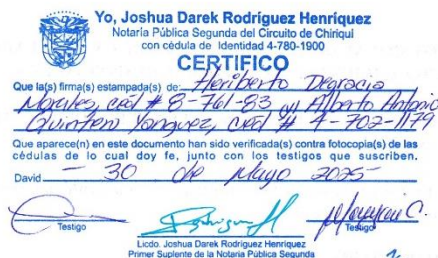 Yo, Joshua Darek Rodriguez Henriquez
Notaria Pública Segunda del Circuito de Chiriqui
con cédula de Identidad 4-780-1900
CERTIFICO
Que la(s) firma(s) estampada(s) de: Heriberto Degracia
Morales, ced # 8-761-83 y Alberto Antonio
Quintero Yanguez, ced # 4-702-1179
Que aparece(n) en este documento han sido verificada(s) contra fotocopia(s) de las
cédulas de lo cual doy fe, junto con los testigos que suscriben.
David 30 de Mayo 2025
Testigo
Testigo
Licdo. Joshua Darek Rodriguez Henriquez
Primer Suplente de la Notaria Pública Segunda